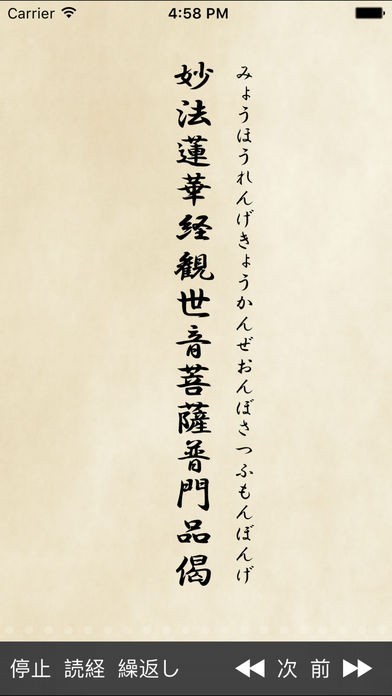 Carrier 4:58 PM
妙法蓮華経観世音菩薩普門品偈
みょうほうれんげきょうかんぜおんぼさつふもんぼんげ
停止 読経 繰返し 次 前